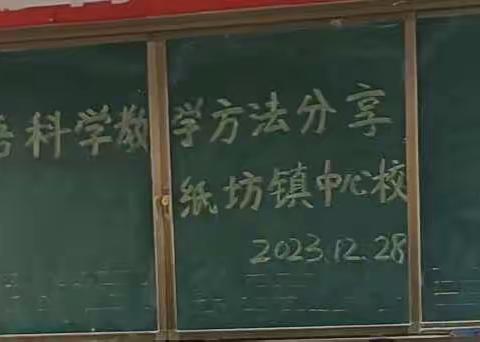 科学教学方法分享
纸坊镇中心校
2023.12.28